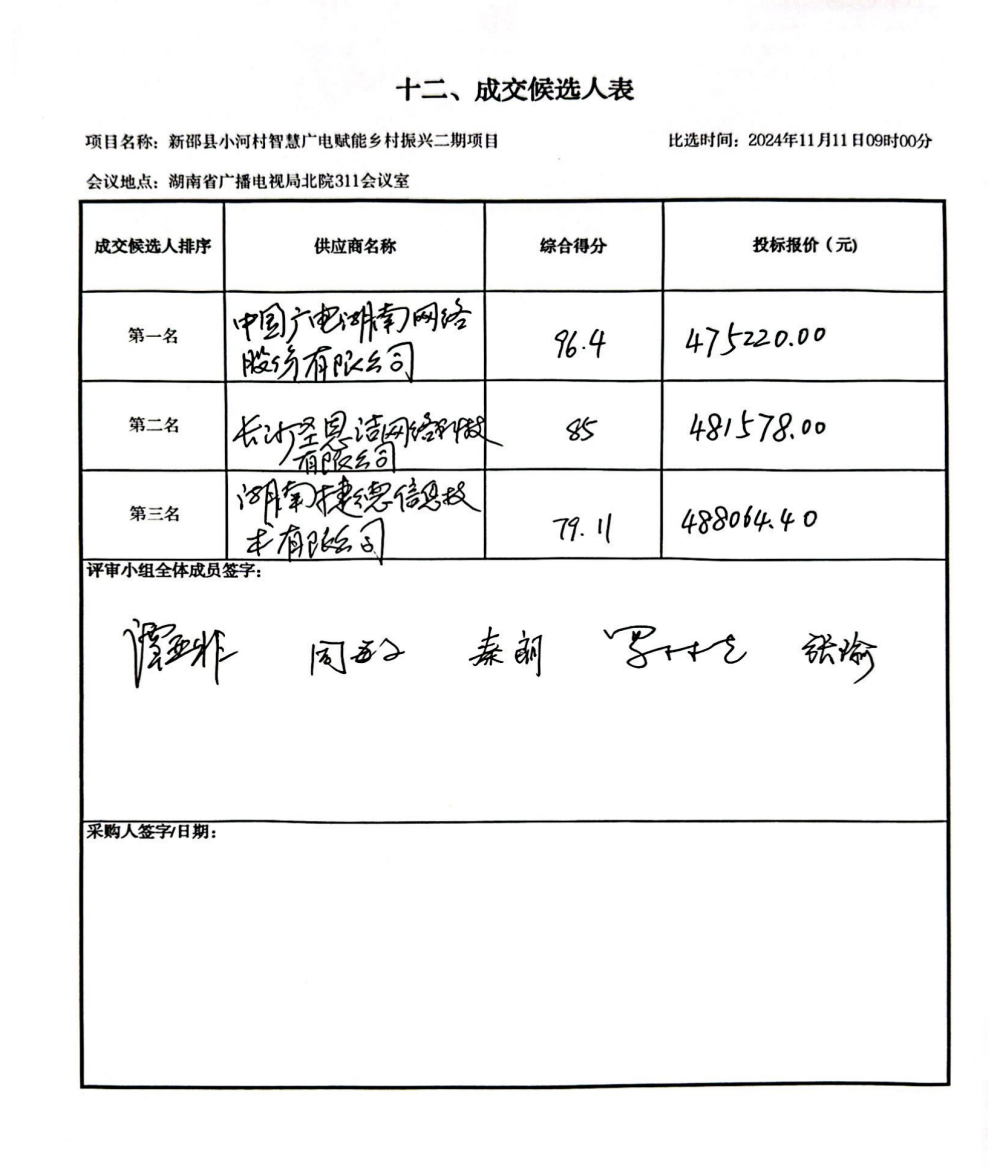 十二、成交候选人表
项目名称：新邵县小河村智慧广电赋能乡村振兴二期项目 比选时间：2024年11月11日09时00分
会议地点：湖南省广播电视局北院311会议室
成交候选人排序 供应商名称 综合得分 投标报价（元）
第一名 中国广电湖南网络股份有限公司 96.4 475220.00
第二名 长沙圣恩洁网络科技有限公司 85 481578.00
第三名 湖南捷德信息技术有限公司 79.11 488064.40
评审小组全体成员签字：
谭亚非 秦朗 张瑜
采购人签字/日期：